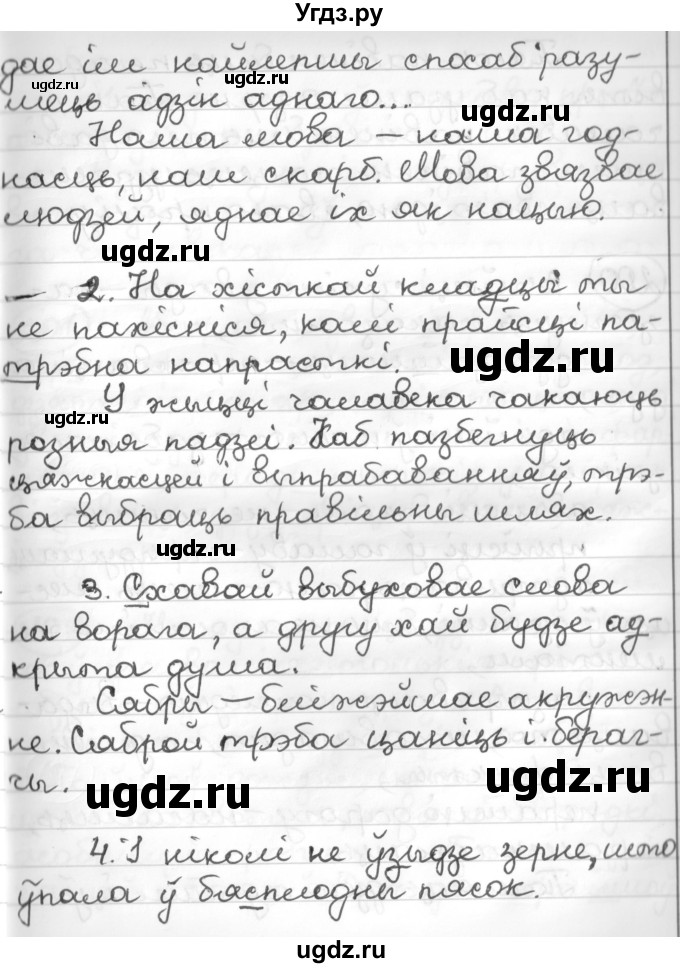 Угдз.ру
дае ім найлепшы спосаб разу-
мець адзін аднаго...
ugdz.ru
ugdz.ru
Наша мова – наша год-
насць, наш скарб. Мова звязвае
людзей, яднае іх як нацыю.
ugdz.ru
– 2. На хісткай кладцы ты
не пахісніся, калі прайсці па-
трэбна напрасткі.
ugdz.ru
У жыцці чалавека чакаюць
ugdz.ru
розныя падзеі. Каб пазбегнуць
цяжкасцей і выпрабаванняў, трэ-
ба выбраць правільны шлях.
ugdz.ru
3. Схавай выбуховае слова
на ворага, а другу хай будзе ад-
крыта душа.
Сябры – бліжэйшае акружэн-
не. Сяброў трэба цаніць і бераг-
чы.
ugdz.ru
ugdz.ru
4. І ніколі не ўзыдзе зерне, што
ўпала ў бясплодны пясок.
ugdz.ru